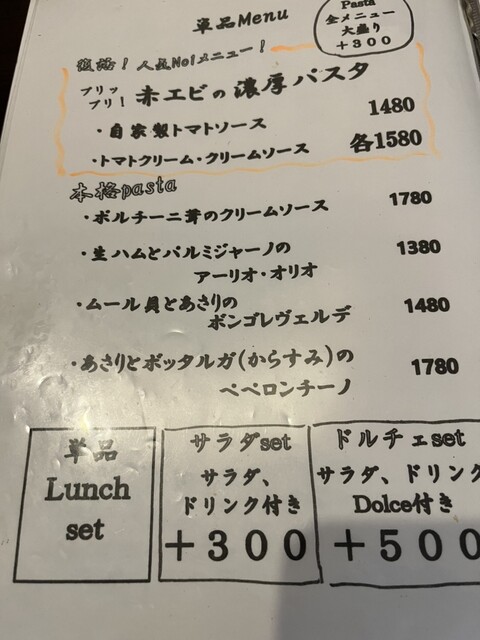 単品Menu
Pasta
全メニュー
大盛り
+300
復活！人気No!メニュー！
プリッ
プリ！赤エビの濃厚パスタ
・自家製トマトソース 1480
・トマトクリーム・クリームソース 各1580
本格pasta
・ポルチーニ茸のクリームソース 1780
・生ハムとパルミジャーノの 1380
アーリオ・オリオ
・ムール貝とあさりの 1480
ボンゴレヴェルデ
・あさりとボッタルガ(からすみ)の 1780
ペペロンチーノ
単品
Lunch
set
サラダset
サラダ、
ドリンク付き
+300
ドルチェset
サラダ、ドリンク
Dolce付き
+500